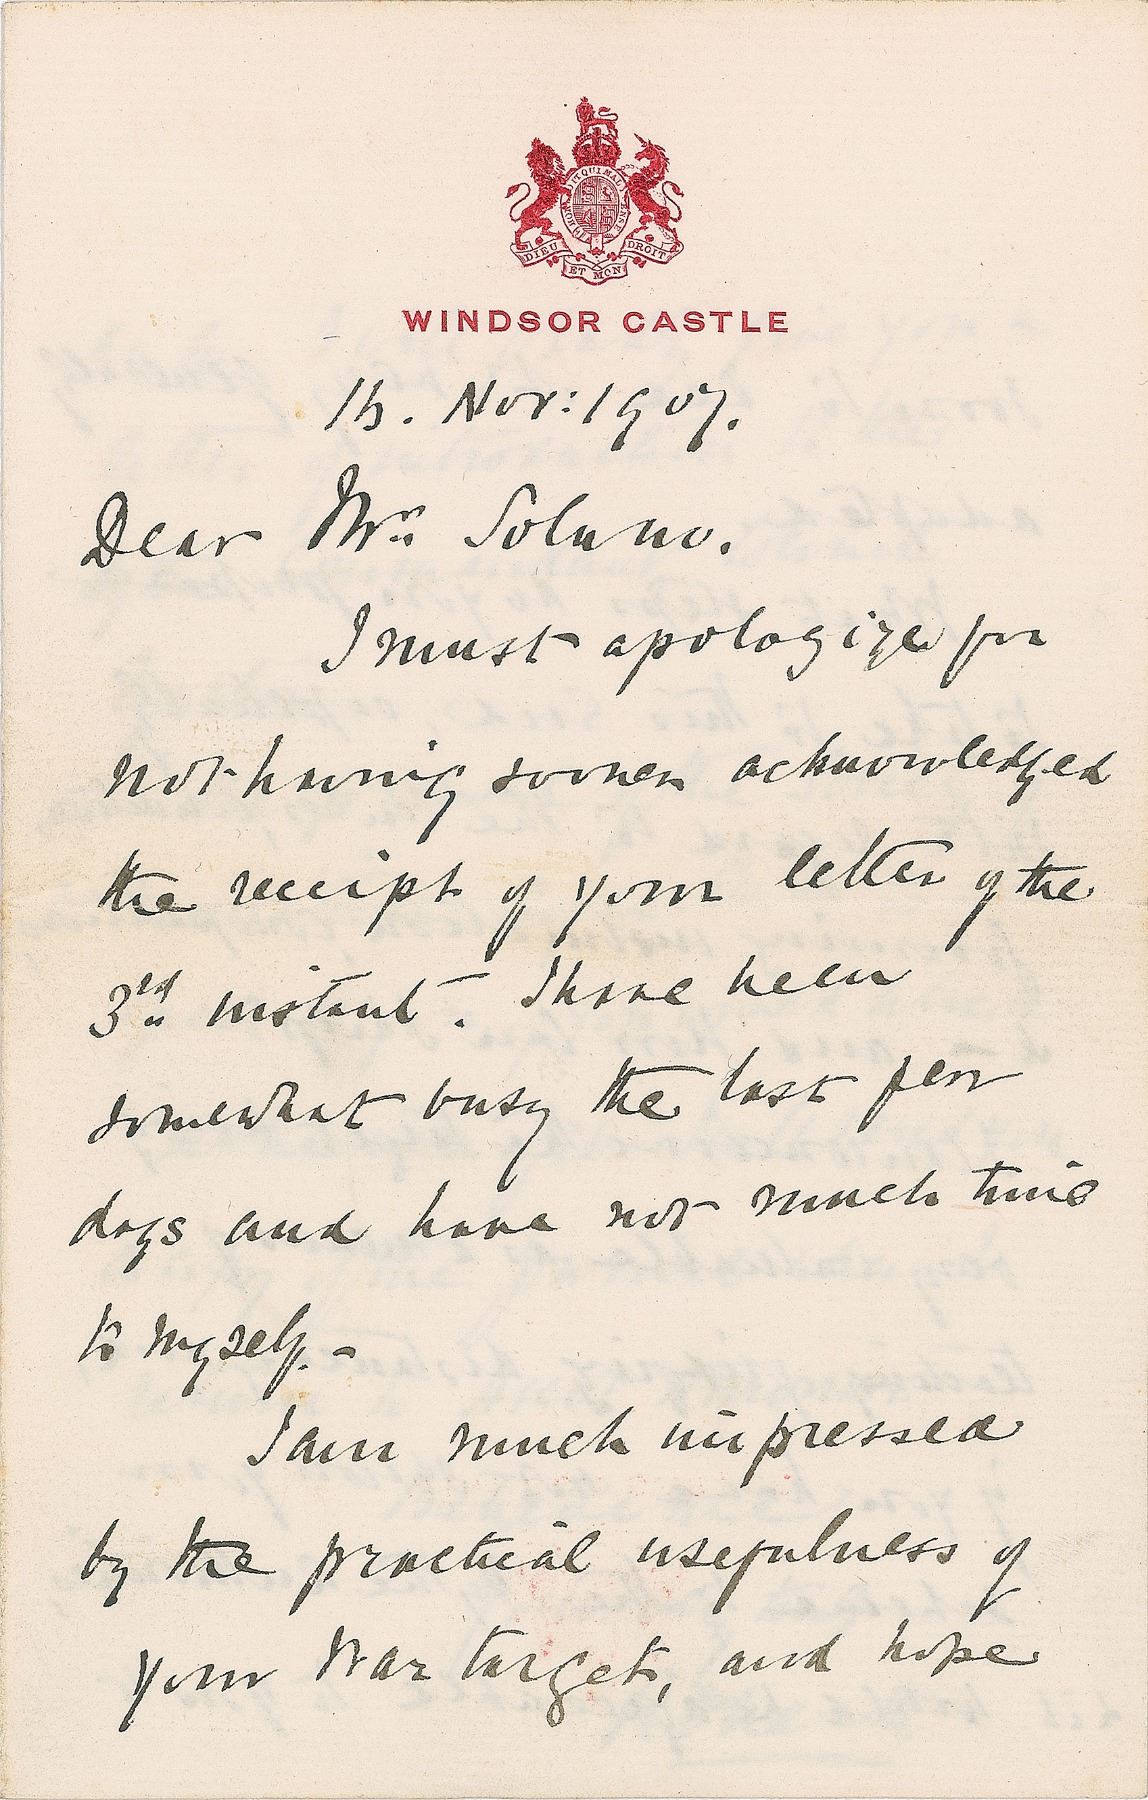 HONI SOIT QUI MAL Y PENSE
DIEU ET MON DROIT
WINDSOR CASTLE
Nov: 1907.
Dear Mr Solano.
I must apologize for
not having sooner acknowledged
the receipt of your letter of the
3rd instant. I have been
somewhat busy the last few
days and have not much time
to myself. -
I am much impressed
by the practical usefulness of
your War target, and hope